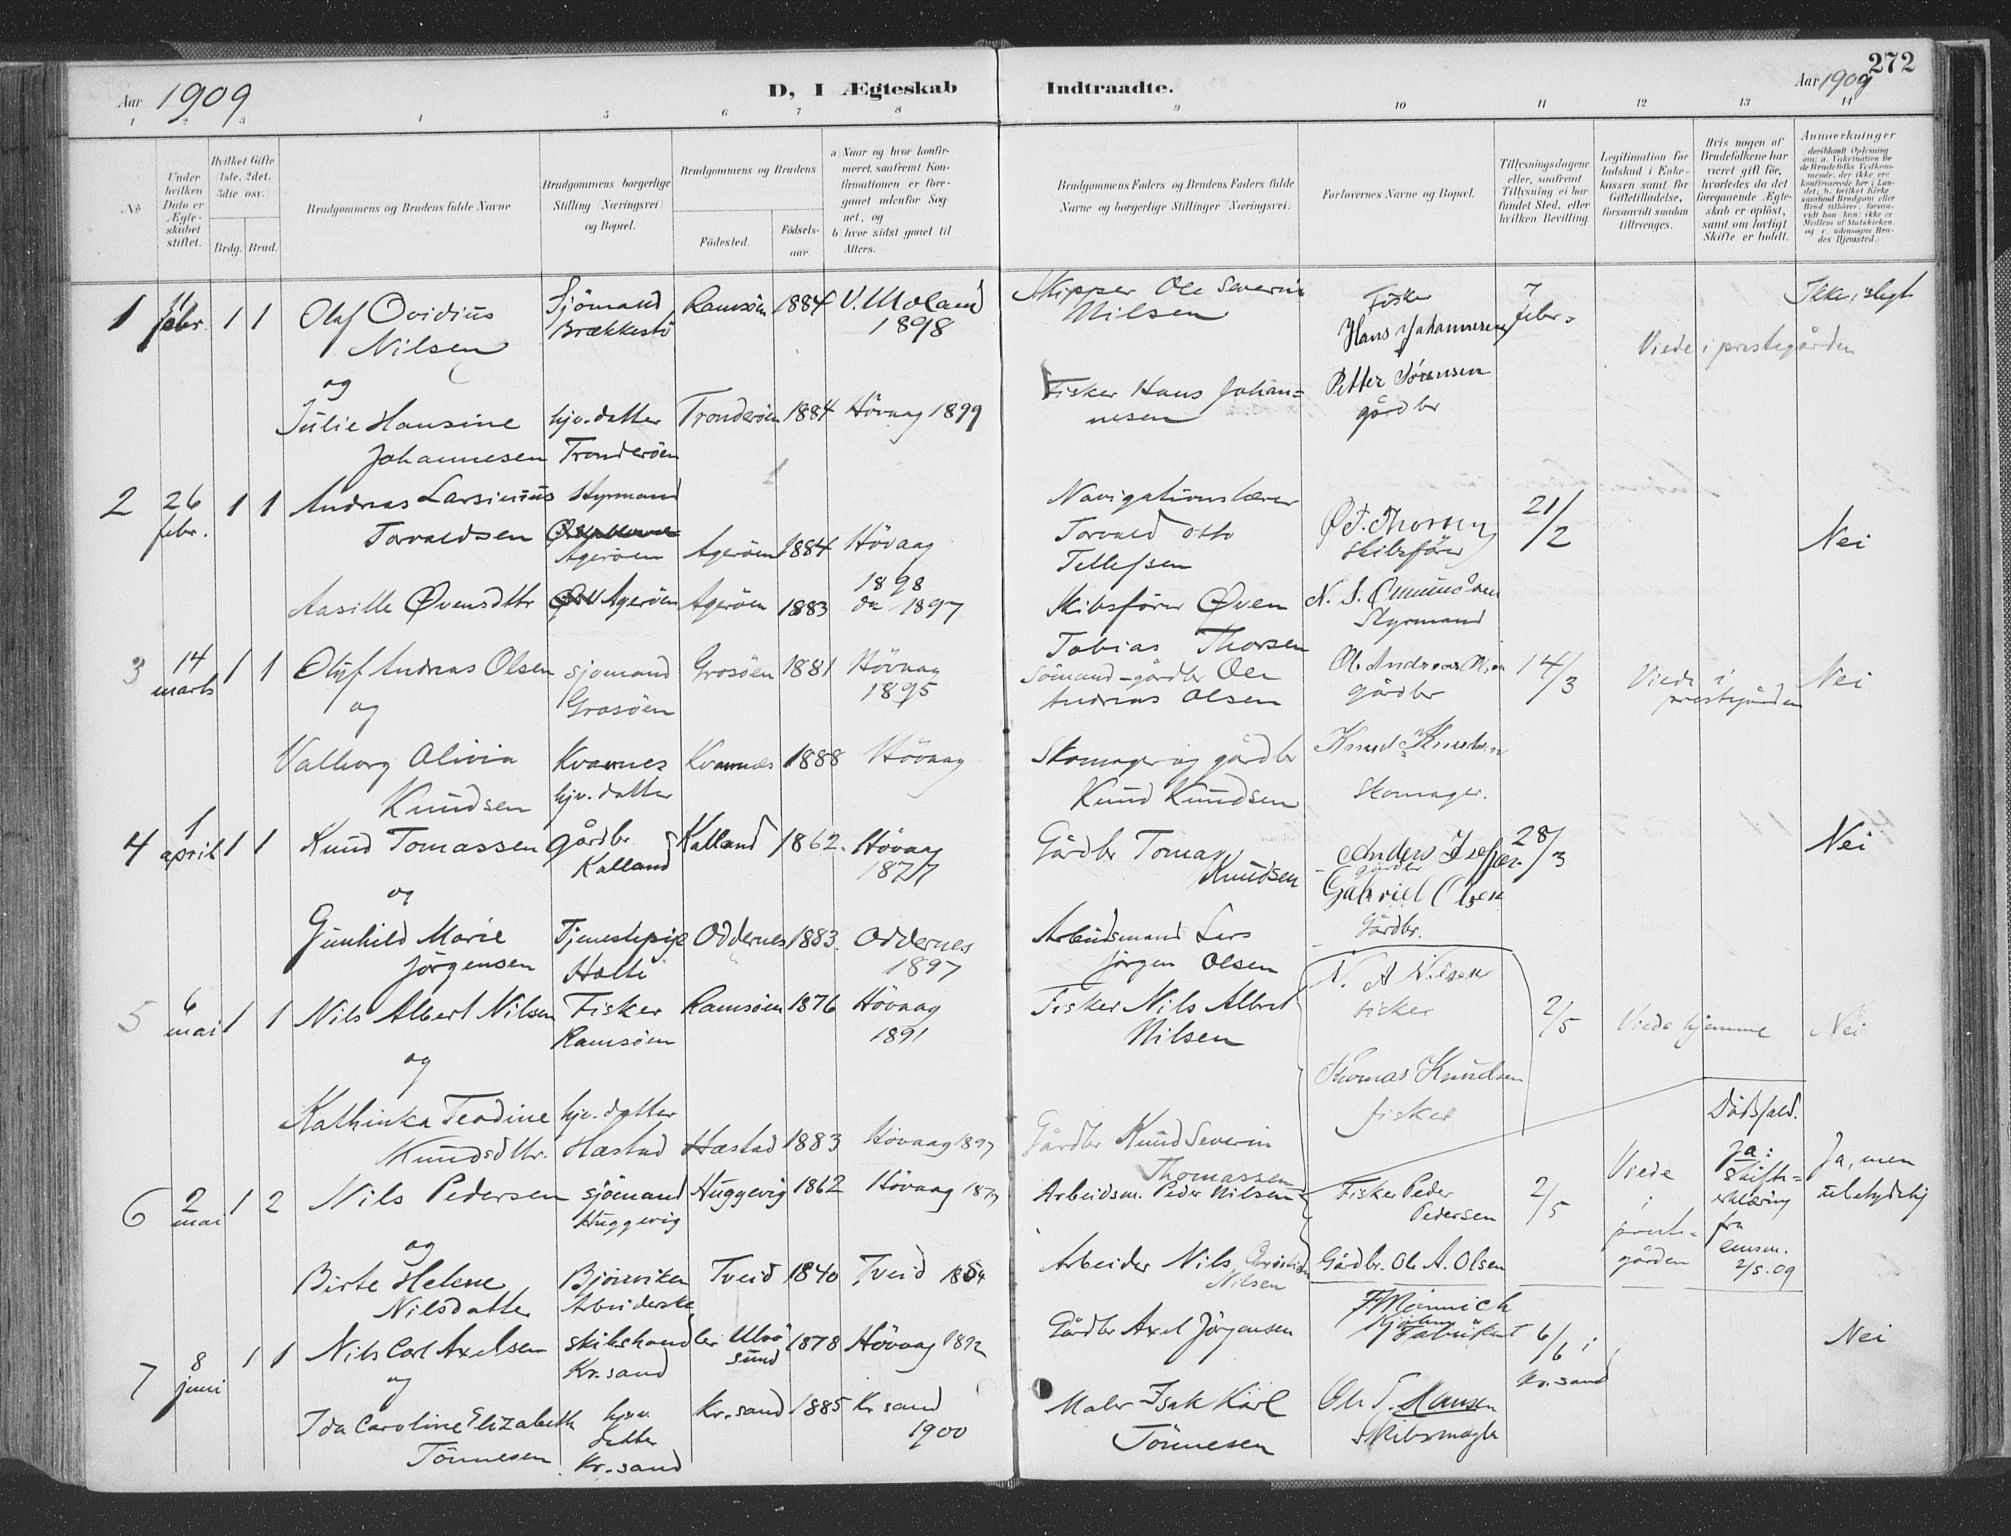 272
Aar 1909
D, I Ægteskab Indtraadte.
Aar 1909
1 2 3 4 5 6 7 8 9 10 11 12 13 14
No
Under hvilken Dato er Ægteskabet stiftet.
Hvilket Gifte (1ste, 2det, 3die osv.)
Brdg. Brud.
Brudgommens og Brudens fulde Navne
Brudgommens borgerlige Stilling (Næringsvei) og Bopæl.
Brudgommens og Brudens
Fødested.
Fødselsaar.
a) Naar og hvor konfirmeret, saafremt Konfirmationen er foregaaet udenfor Sognet, og
b) hvor sidst gaaet til Alters.
Brudgommens Faders og Brudens Faders fulde Navne og borgerlige Stillinger (Næringsvei)
Forlovernes Navne og Bopæl.
Tillysningsdagene eller, saafremt Tillysning ei har fundet Sted, efter hvilken Bevilling.
Legitimation for Indskud i Enkekassen samt for Giftetilladelse, forsaavidt saadan tiltrænges.
Hvis nogen af Brudefolkene har været gift før, hvorledes da det foregaaende Ægteskab er opløst, samt om lovligt Skifte er holdt.
Anmærkninger
1 11 febr. 1 1 Olaf Ovidius Nilsen
Sjömand Brækkestö
Ramsöen 1884 V. Moland 1898
Skipper Ole Severin Nilsen
Fisker Hans Johannesen
7 febr.
Viede i prestegården
Ikke i slegt
og
Julie Hansine Johannesen
hjv. datter Tronderöen
Tronderöen 1884 Hövaag 1899
Fisker Hans Johannesen
Petter Sörensen gårdbr
2 26 febr. 1 1 Andreas Larsinius Torvaldsen
Styrmand Ageröen
Ageröen 1884 Hövaag 1898
Navigationslærer Torvald Otto Tellefsen
Ø. T. Thorsen Skibsförer
21/2
Nei
Aasille Øvensdtr
Ageröen
Ageröen 1883 do 1897
Skibsförer Øven Tobias Thorsen
Styrmand
3 14 marts 1 1 Oluf Andreas Olsen
sjömand Grosöen
Grosöen 1881 Hövaag 1895
Sömand - gårdbr Ole Andreas Olsen
Ole Andreas Olsen gårdbr
14/3
Viede i prestegården
Nei
og
Valborg Olivia Knudsen
Kvarnes hjv. datter
Kvarnes 1888 Hövaag
Skomager og gårdbr Knud Knudsen
Knud Knudsen Skomager.
4 1 april 1 1 Knud Tomassen
gårdbr. Kalland
Kalland 1862. Hövaag 1877
Gårdbr Tomas Knudsen
Anders gårdbr
28/3
Nei
og
Gunhild Marie Jörgensen
Tjenestepige
Oddernes 1883. Oddernes 1897
Arbeidsmand Lars Jörgen Olsen
Gabriel Olsen Gårdbr.
5 6 mai 1 1 Nils Albert Nilsen
Fisker Ramsöen
Ramsöen 1876 Hövaag 1891
Fisker Nils Albret Nilsen
N. A Nilsen fisker
2/5
Viede hjemme
Nei
og
Kathinka Teodine Knudsdtr.
hjv. datter Hæstad
Hæstad 1883 Hövaag 1897
Gårdbr Knud Severin Thomassen
Thomas Knudsen fisker
6 2 mai 1 2 Nils Pedersen
sjömand Huggevig
Huggevig 1862 Hövaag 1877
Arbeidsm. Peder Nilsen
Fisker Peder Pedersen
2/5
Viede i prestegården
Dödsfald.
Ja: skifteerklæring fra enkem. 2/5.09
Ja, men ubetydelig
og
Birte Helene Nilsdatter
Bjönviken Arbeiderske
Tveid 1840 Tveid 1854
Arbeider Nils Christian Nilsen
Gårdbr. Ole A. Olsen
7 8 juni 1 1 Nils Carl Axelsen
skibshandler Kr.sand
Ulvösund 1878 Hövaag 1892
Gårdbr Axel Jörgensen
Fabrikant
6/6 i Kr.sand
Nei
og
Ida Caroline Elizabeth Tönnesen
hjv. datter Kr.sand
Kr.sand 1885 Kr sand 1900
Maler Isak Karl Tönnesen
Ole T. Hansen Skibsmægler